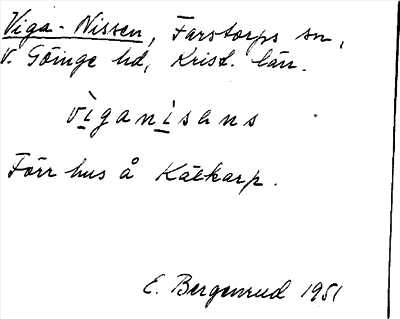 Viga-Nissen, Farstorps sn,
V. Göinge hd, Krist. län.
vìganisans
Förr hus å Kälkarp.
E. Bergenrud 1951